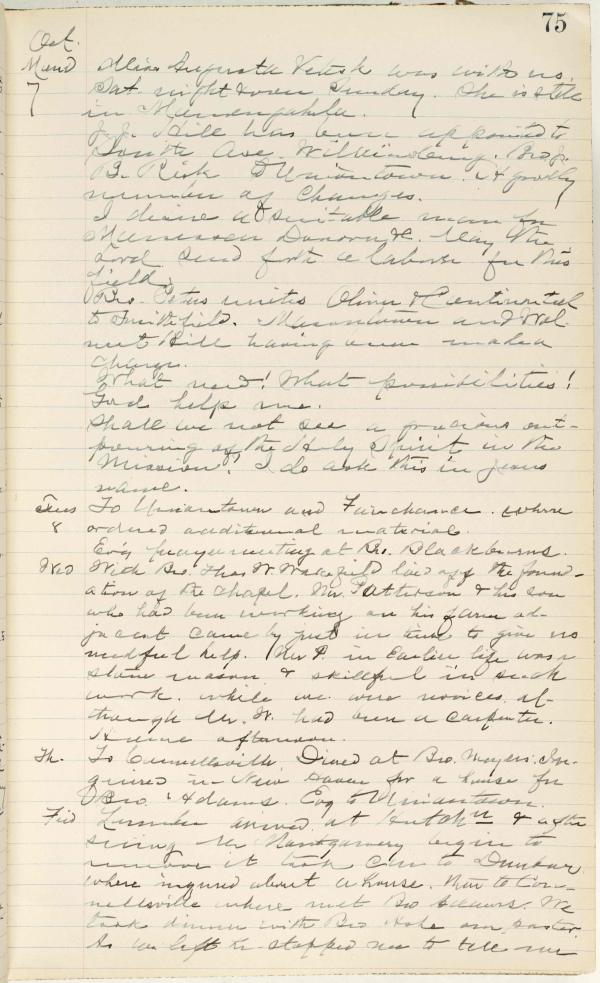 75
Oct.
Mond Miss Augusta was with us
7 Sat. night & over Sunday. She is still
in Monongahela.
J. J. Hill has been appointed to
South Ave. Wilkinsburg. Bro J.
B. Risk to Uniontown. A goodly
number of changes.
I desire a suitable man for
Monessen Donora &c. May the
Lord send forth a laborer for this
field.
Bro. unites Oliver & Continental
to Smithfield. Masontown and Wal-
nut Hill having now made a
charge.
What need! What possibilities!
God help me.
Shall we not see a gracious out-
pouring of the Holy Spirit in the
Mission! I do ask this in Jesus
name.
Tues To Uniontown and Fairchance. where
8 ordered additional material.
Ev'g prayermeeting at Bro. Blackburns.
Wed With Bro. Thos. W. Wakefield laid off the found-
ation of the chapel. Mr. Patterson & his son
who had been working on his farm ad-
jacent came by just in time to give us
needful help. Mr P. in earlier life was a
stone mason & skillful in such
work. while we were novices al-
though Mr. W. had been a carpenter.
Home afternoon.
Th. To Connellsville. Dined at Bro. Moyers. In-
quired in New Haven for a house for
Bro. Adams. Evg to Uniontown.
Frid Lumber arrived at Hutchn & after
seeing Mr Montgomery begin to
remove it took car to Dunbar
where inquired about a house. Then to Con-
nellsville where met Bro Adams. We
took dinner with Bro our pastor.
As we left he stopped me to tell me